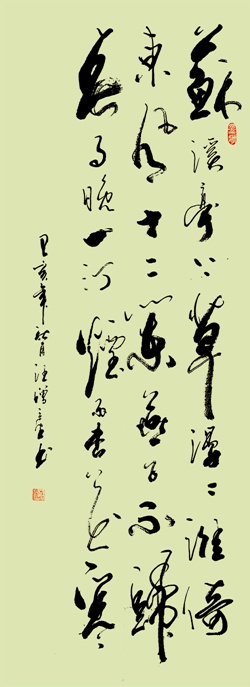 蘇溪亭上草漫〻誰倚
東風十二闌燕子不歸
春事晚一汀煙雨杏花寒
己亥年秋月汪書